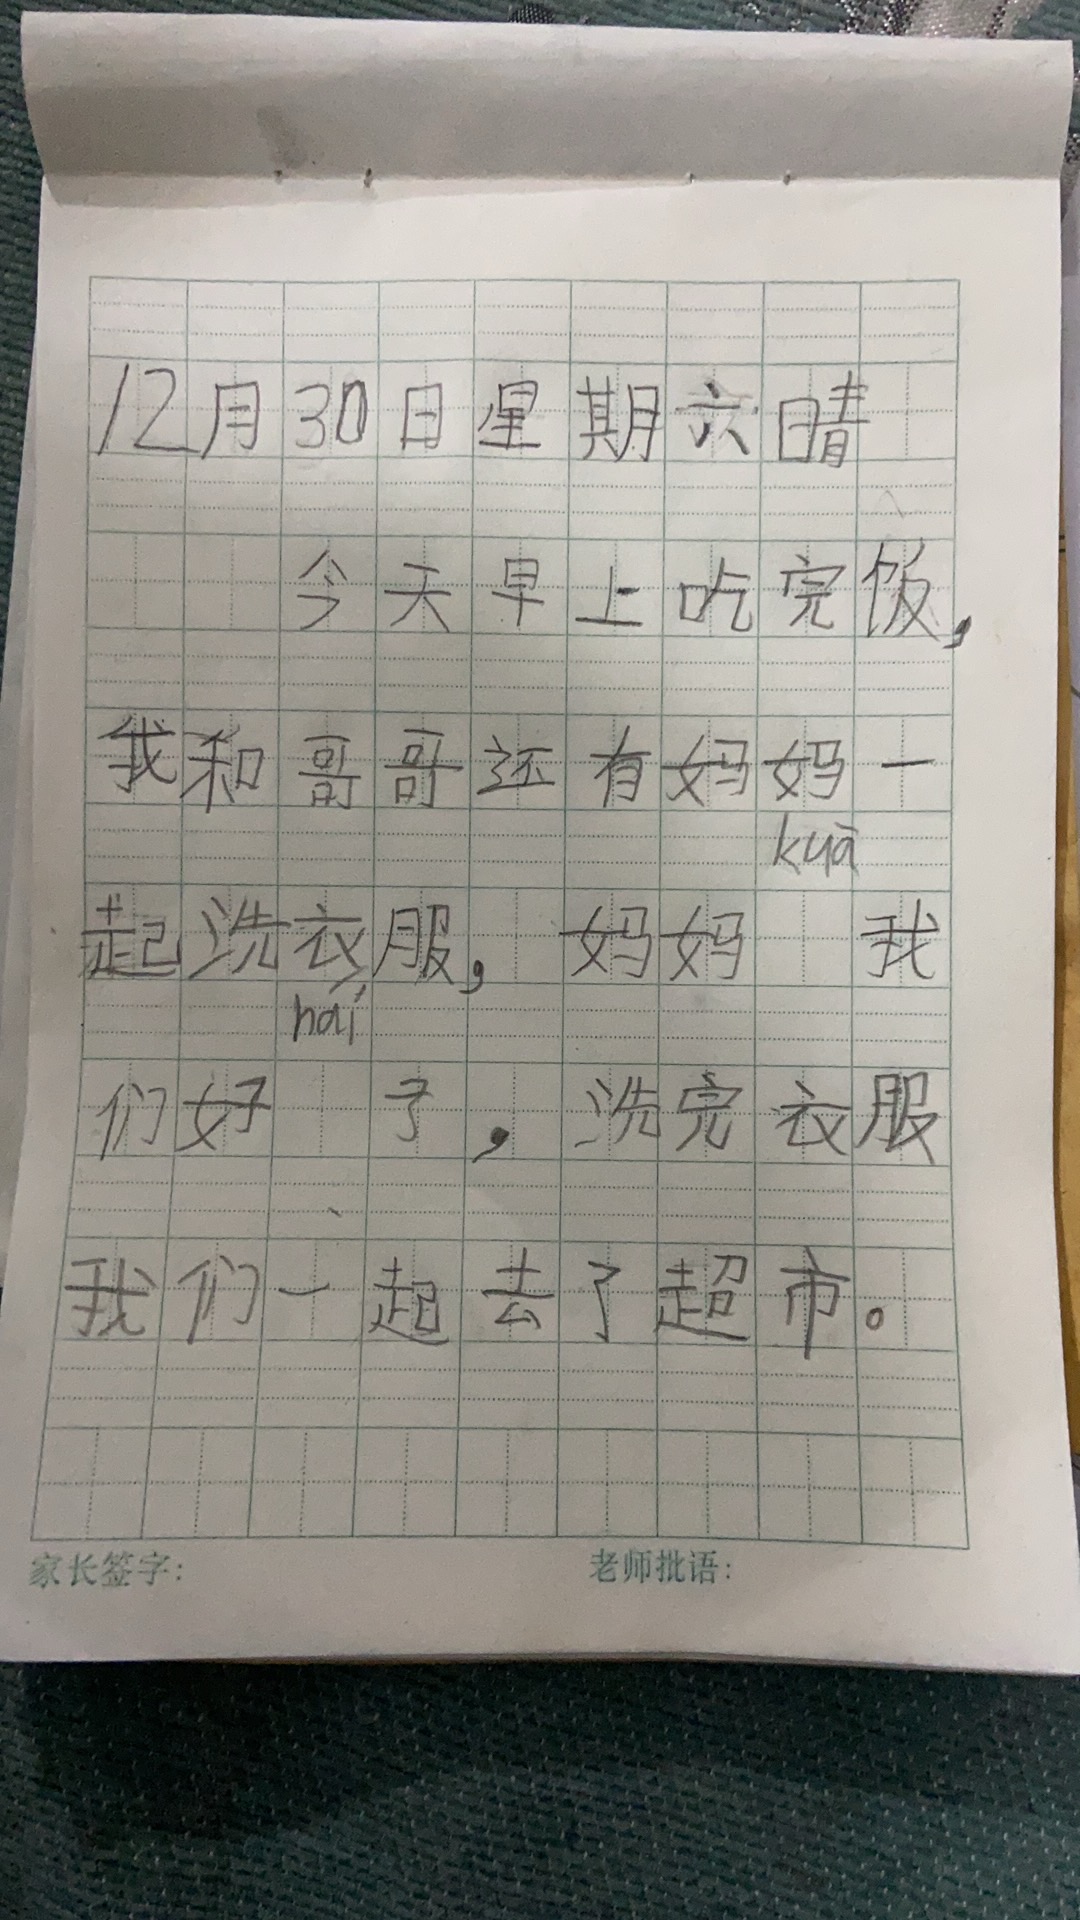 12月30日星期六晴
今天早上吃完饭，
我和哥哥还有妈妈一
kuā
起洗衣服，妈妈 我
hái
们好 了，洗完衣服
我们一起去了超市。
家长签字： 老师批语：